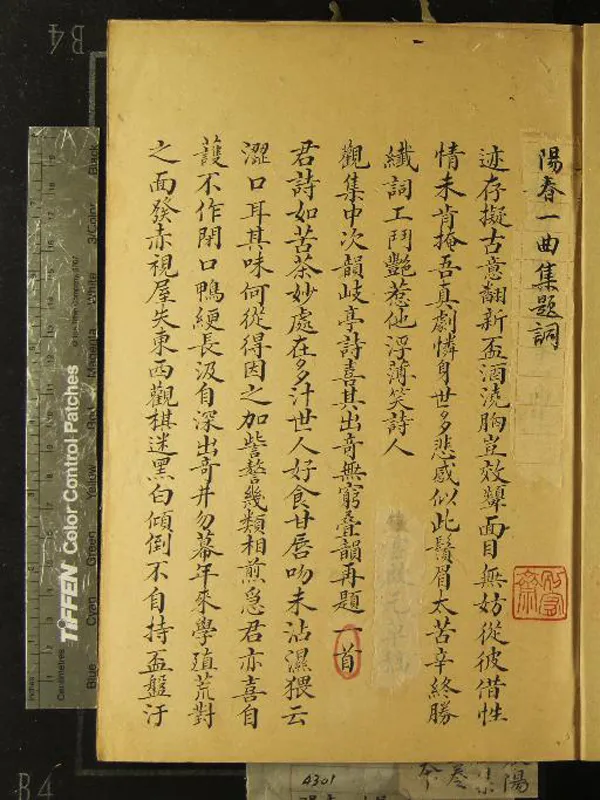 陽春一曲集題詞
迹存擬古意翻新盃酒澆胸豈效顰面目無妨從彼借性
情未肯掩吾真劇憐身世多悲感似此鬚眉太苦辛終勝
纖詞工鬥艷惹他浮薄笑詩人
觀集中次韻岐亭詩喜其出奇無窮叠韻再題一首
君詩如苦茶妙處在多汁世人好食甘唇吻未沾濕猥云
澀口耳其味何從得因之加訾謷幾類相煎急君亦喜自
護不作閉口鴨綆長汲自深出奇井勿幕年來學殖荒對
之面發赤視屋失東西觀棋迷黑白傾倒不自持盃盤汙
TIFFEN Color Control Patches
Blue
Cyan
Green
Yellow
Red
Magenta
White
3/Color
Black
Inches
Centimetres
B4
B4
4301
陽